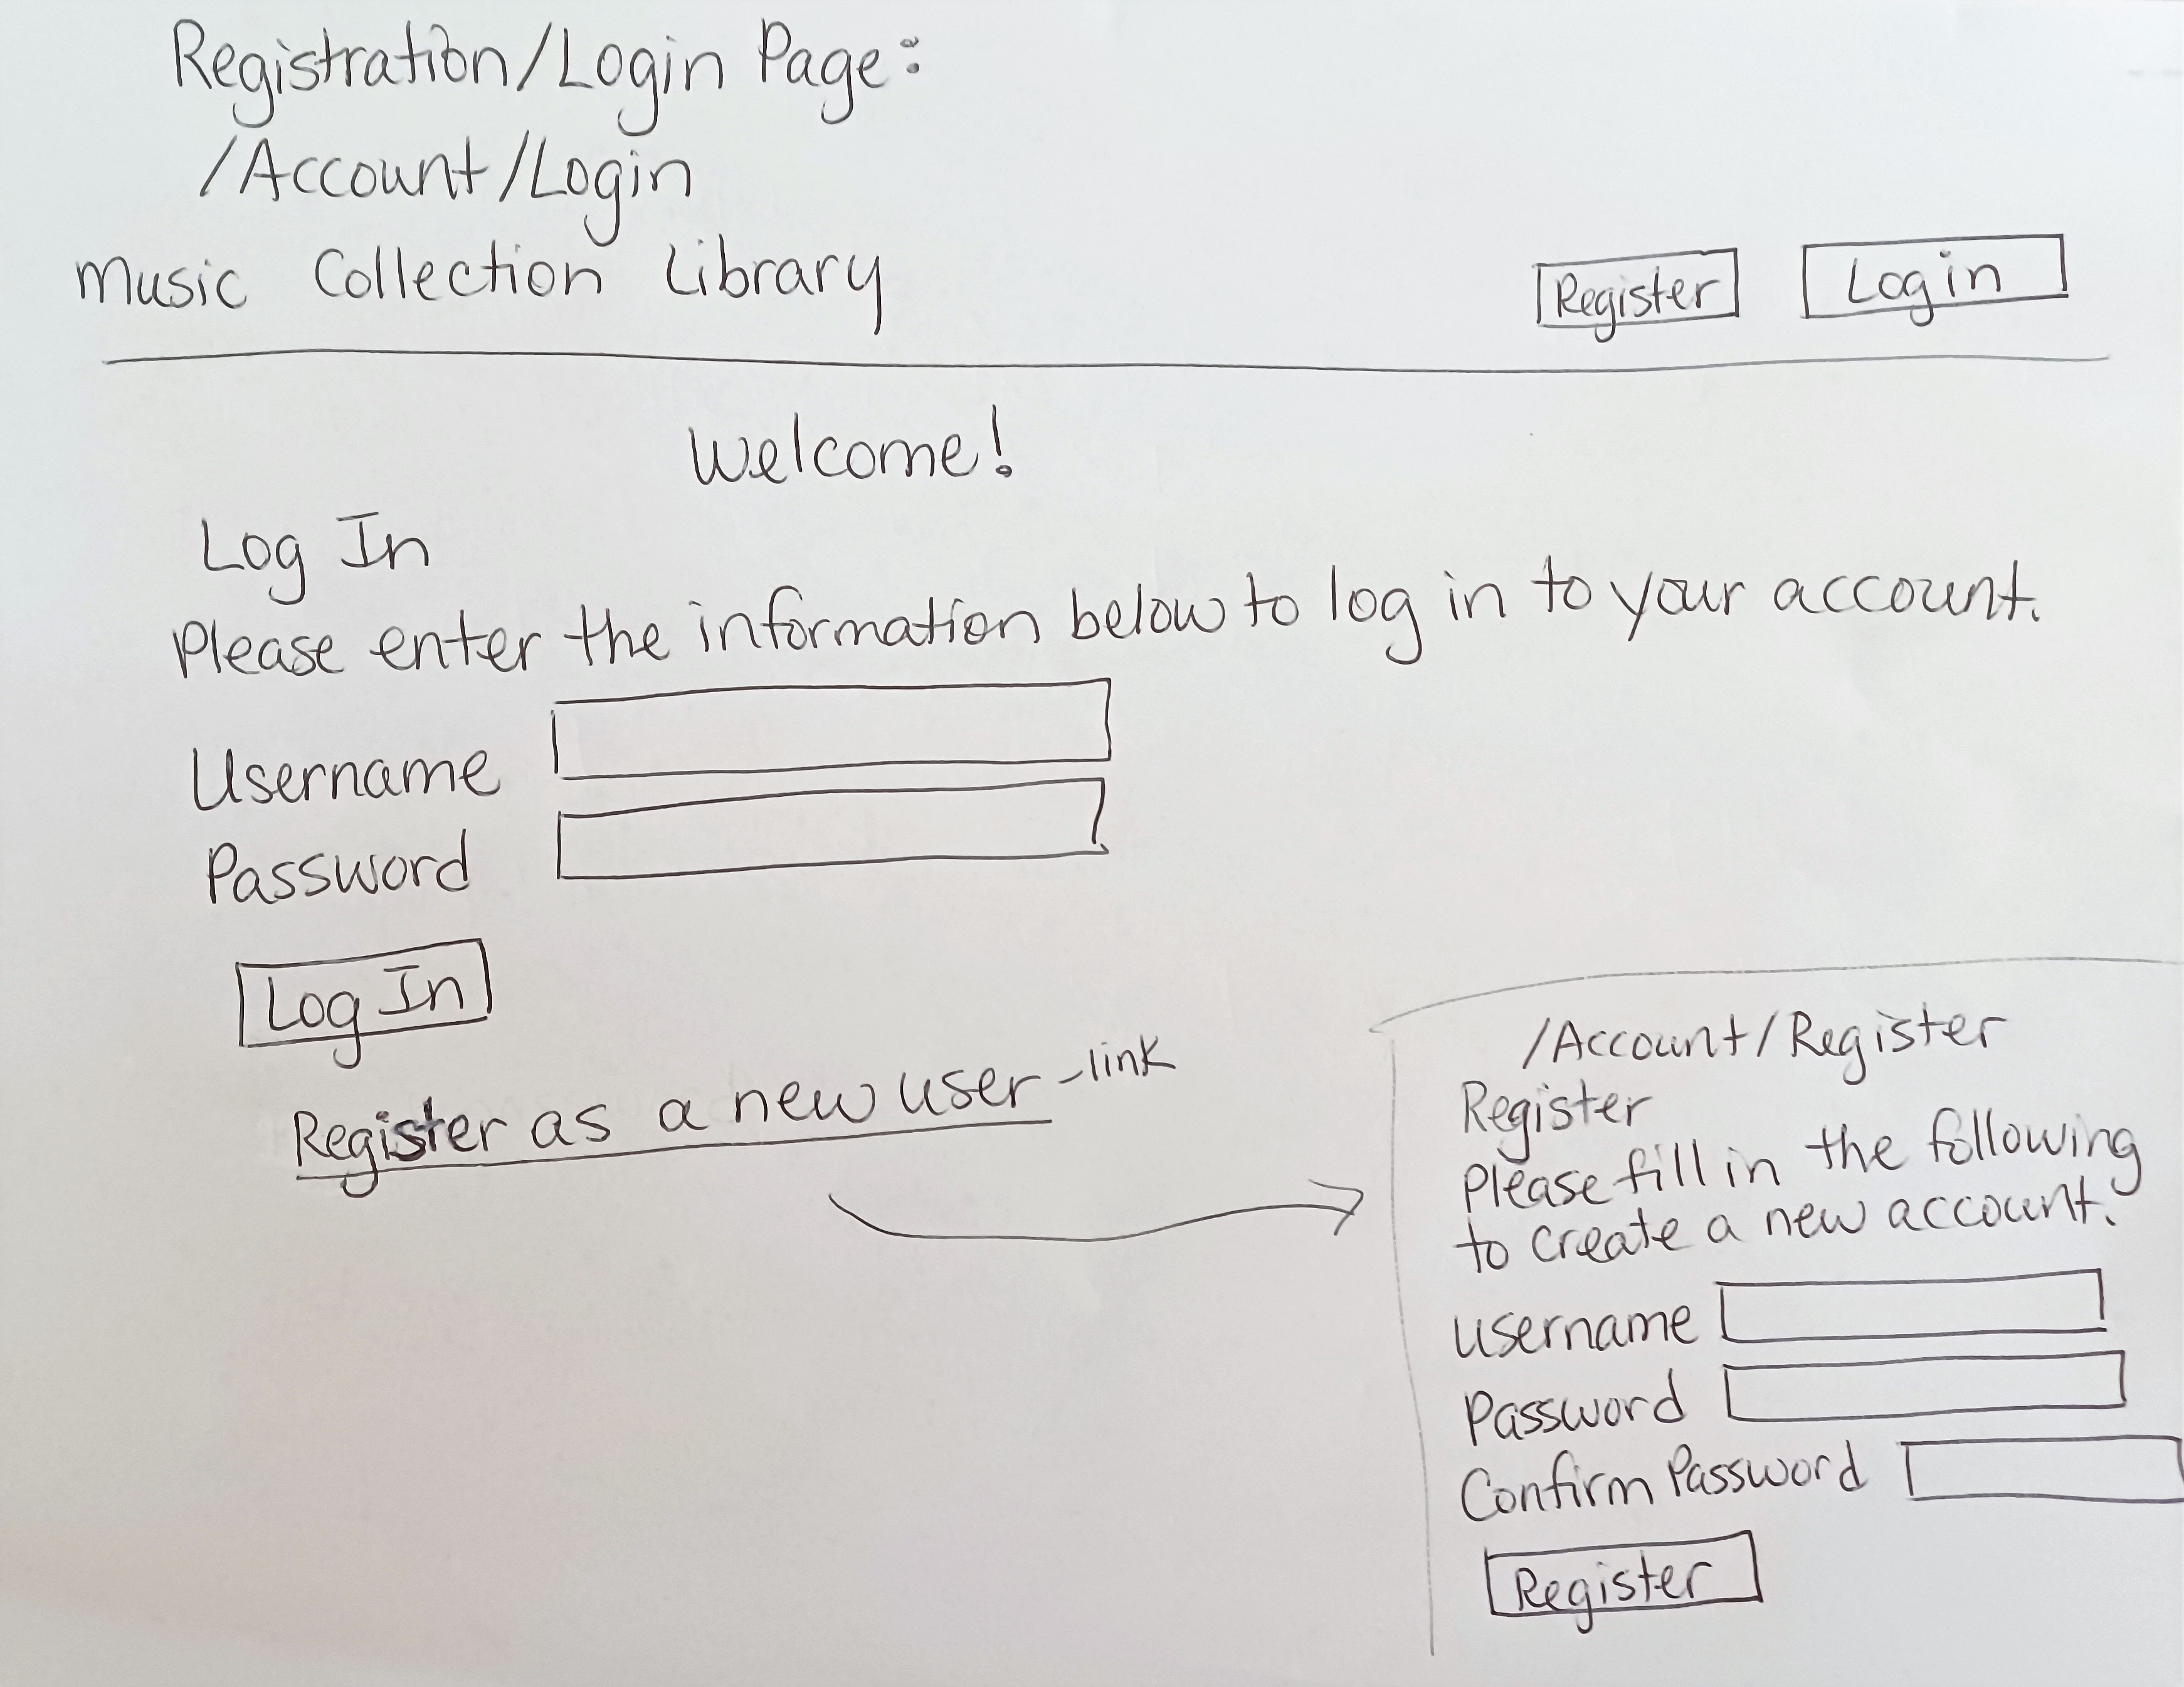 Registration/Login Page:
/Account/Login
Music Collection Library
Register
Login
Welcome!
Log In
Please enter the information below to log in to your account.
Username
Password
Log In
Register as a new user - link
/Account/Register
Register
Please fill in the following
to create a new account.
Username
Password
Confirm Password
Register